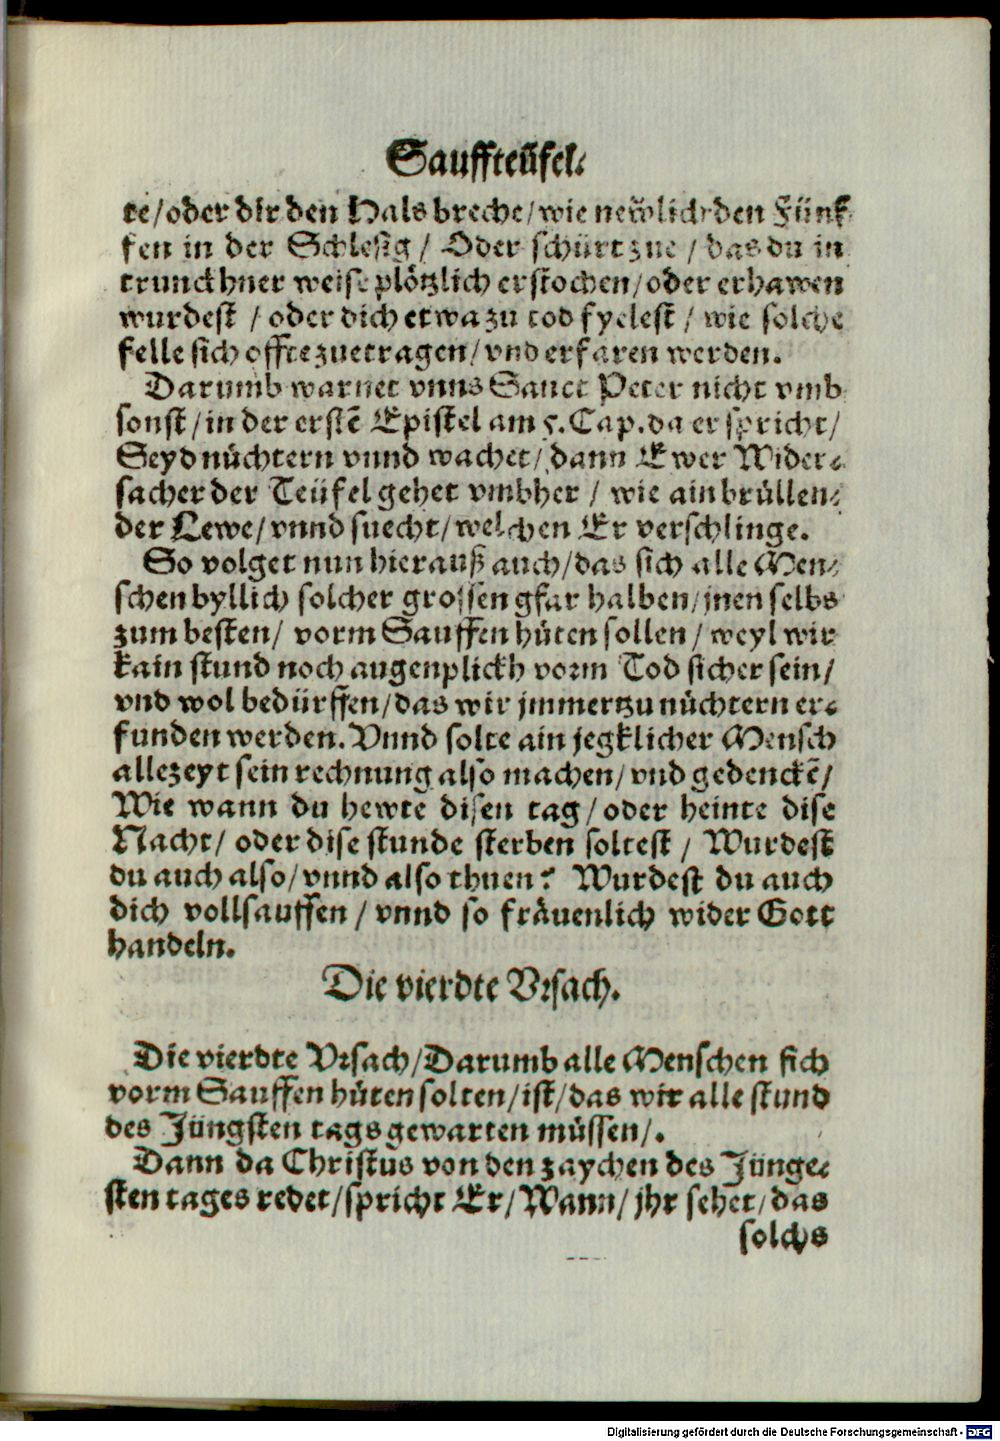 Sauffteüfel.
te/oder dir den Hals breche/wie newlich den Fünf
fen in der Schlesig/ Oder schürt zue/das du in
trunckhner weise plötzlich erstochen/oder erhawen
wurdest/oder dich etwa zu tod fyelest/wie solche
felle sich offte zuetragen/vnd erfaren werden.
Darumb warnet vnns Sanct Peter nicht vmb
sonst/in der erstē Epistel am 5. Cap. da er spricht/
Seyd nüchtern vnnd wachet/dann Ewer Wider⸗
sacher der Teüfel gehet vmbher/wie ain brüllen⸗
der Lewe/vnnd suecht/welchen Er verschlinge.
So volget nun hierauß auch/das sich alle Men⸗
schen byllich solcher grossen gfar halben/jnen selbs
zum besten/vorm Sauffen hüten sollen/weyl wir
kain stund noch augenplickh vorm Tod sicher sein/
vnd wol bedürffen/das wir jmmertzu nüchtern er⸗
funden werden. Vnnd solte ain jegklicher Mensch
allezeyt sein rechnung also machen/vnd gedenckē/
Wie wann du hewte disen tag/oder heinte dise
Nacht/oder dise stunde sterben soltest/Wurdest
du auch also/vnnd also thuen? Wurdest du auch
dich vollsauffen/vnnd so fräuenlich wider Gott
handeln.
Die vierdte Vrsach.
Die vierdte Vrsach/Darumb alle Menschen sich
vorm Sauffen hüten solten/ist/das wir alle stund
des Jüngsten tags gewarten müssen/.
Dann da Christus von den zaychen des Jünge⸗
sten tages redet/spricht Er/Wann/jhr sehet/das
solchs
Digitalisierung gefördert durch die Deutsche Forschungsgemeinschaft - DFG